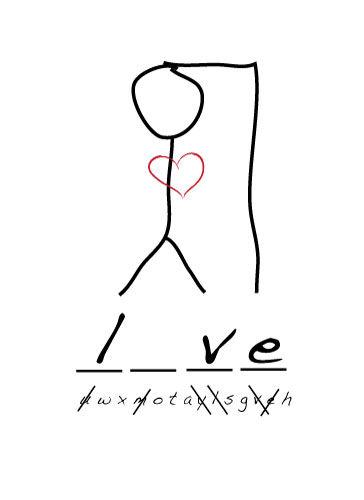 l _ v e
w x m o t a l s g v e h